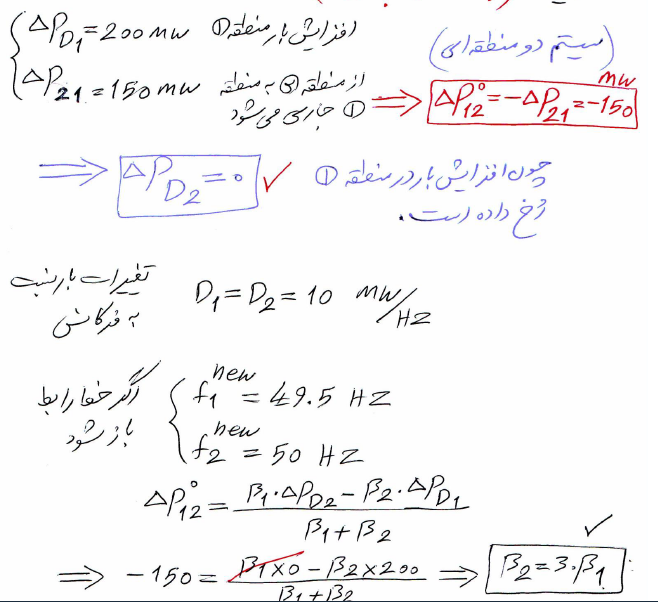 ΔP_D1 = 200 MW افزایش بار منطقه ①
(سیستم دو منطقه‌ای)
ΔP_21 = 150 MW از منطقه ② به منطقه ① جاری می‌شود
⇒ ΔP°_12 = -ΔP_21 = -150 MW
⇒ ΔP_D2 = 0 ✓ چون افزایش بار در منطقه ①
رُخ داده است.
تغییرات بار نسبت به فرکانس D_1 = D_2 = 10 MW/HZ
اگر خط رابط باز شود
f_1^new = 49.5 HZ
f_2^new = 50 HZ
ΔP°_12 = (β_1·ΔP_D2 - β_2·ΔP_D1) / (β_1 + β_2)
⇒ -150 = (β_1×0 - β_2×200) / (β_1 + β_2) ⇒ β_2 = 3·β_1 ✓